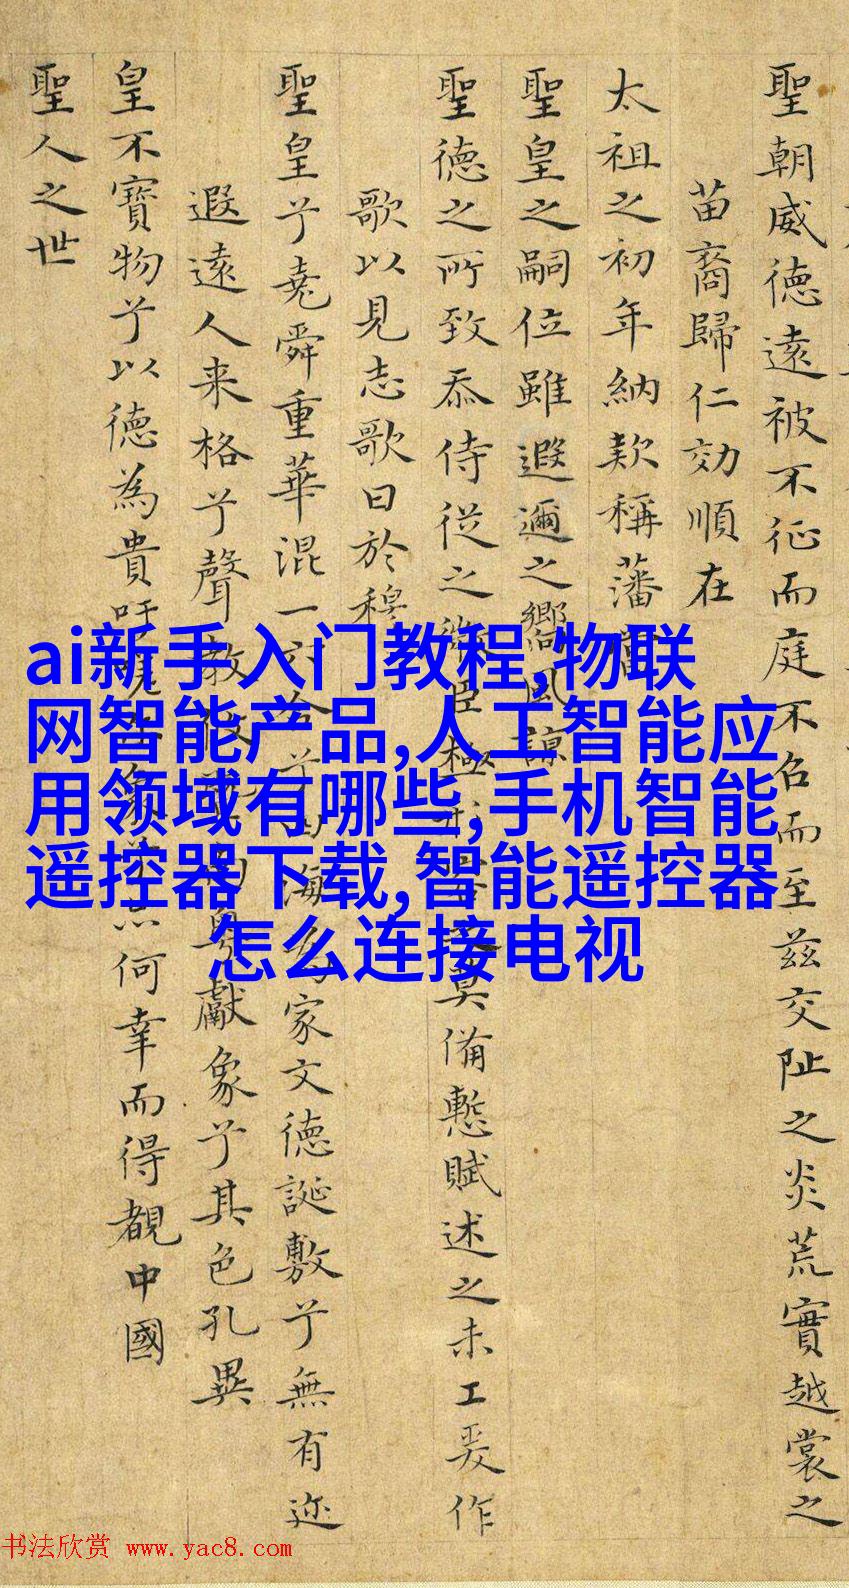 聖朝威德遠被不征而庭不召而至茲交阯之炎荒實越裳之
苗裔歸仁効順在
太祖之初年納款稱藩當
聖皇之嗣位雖遐邇之嚮風諒
聖德之所致忝侍從之臣極莫備慙賦述之未工爰作
歌以見志歌曰於穆
聖皇兮堯舜重華混一六合兮海為家文德誕敷兮無有迩
遐遠人来格兮聲教獻象兮其色孔異
皇不寶物兮以德為貴吁何幸而得覩中國
聖人之世
ai新手入门教程,物联
网智能产品,人工智能应
用领域有哪些,手机智能
遥控器下载,智能遥控器
怎么连接电视
书法欣赏 www.yac8.com